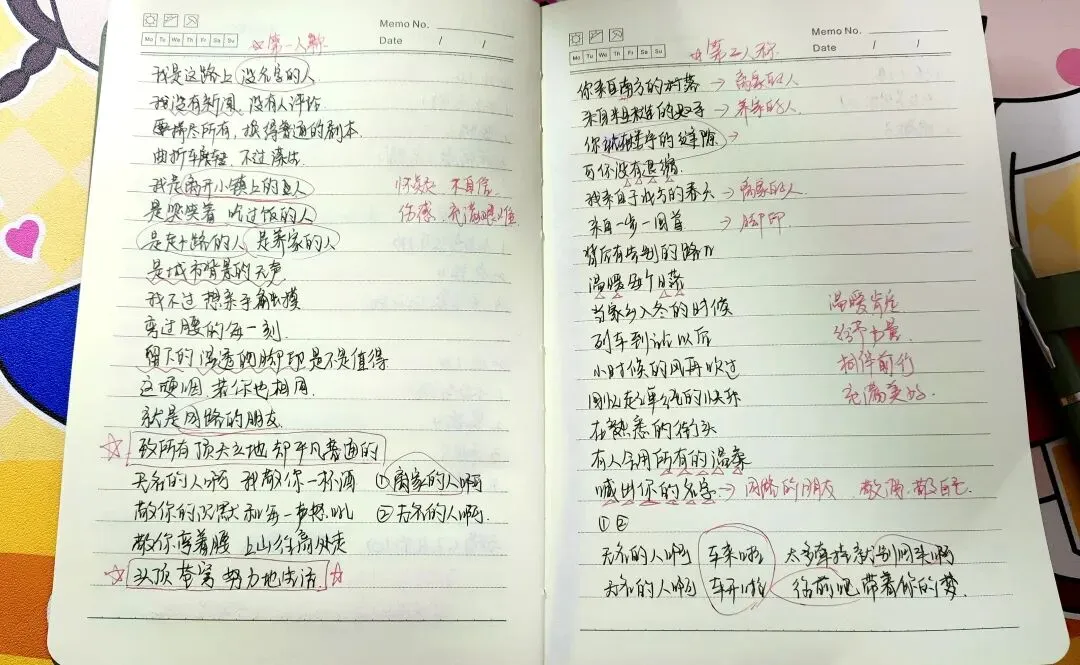 Memo No.
Mo Tu We Th Fr Sa Su
Date / /
☆第一人称
我是这路上 没名字的人
我没有新闻 没有人评论
要拼尽所有,换得普通的剧本
曲折辗转 不过谋生
我是离开小镇上的人
怀疑 不自信
是哭笑着 吃过饭的人
伤感 充满艰难
是赶路的人 是养家的人
是城市背景的无声
我不过 想亲手触摸
弯过腰的每一刻
留下的 湿透的脚印 是不是值得
这哽咽 若你也相同
就是同路的朋友
☆ 致所有顶天立地 却平凡普通的
无名的人啊 我敬你一杯酒
①离家的人啊
敬你的沉默和每一声怒吼
②无名的人啊
敬你弯着腰 上山往高处走
☆ 头顶苍穹 努力地生活 ☆
Memo No.
Mo Tu We Th Fr Sa Su
Date / /
☆第二人称
你来自南方的村落 → 离家的人
来自粗糙的双手 → 养家的人
你 的缝隙 →
可你没有退缩
我来自于北方的春天 → 离家的人
来自一步一回首 → 脚印
背后有告别的路口
温暖每个日落
当家乡入冬的时候
温暖
列车到站以后
给予力量
小时候的风再吹过
相伴前行
回忆起单纯的快乐
充满美好
在熟悉的街头
有人会用所有的温柔
喊出你的名字 → 同路的朋友 敬酒 敬自己
①②
无名的人啊 车来啦 太多牵挂就别回头啊
无名的人啊 车开啦 往前吧 带着你的梦